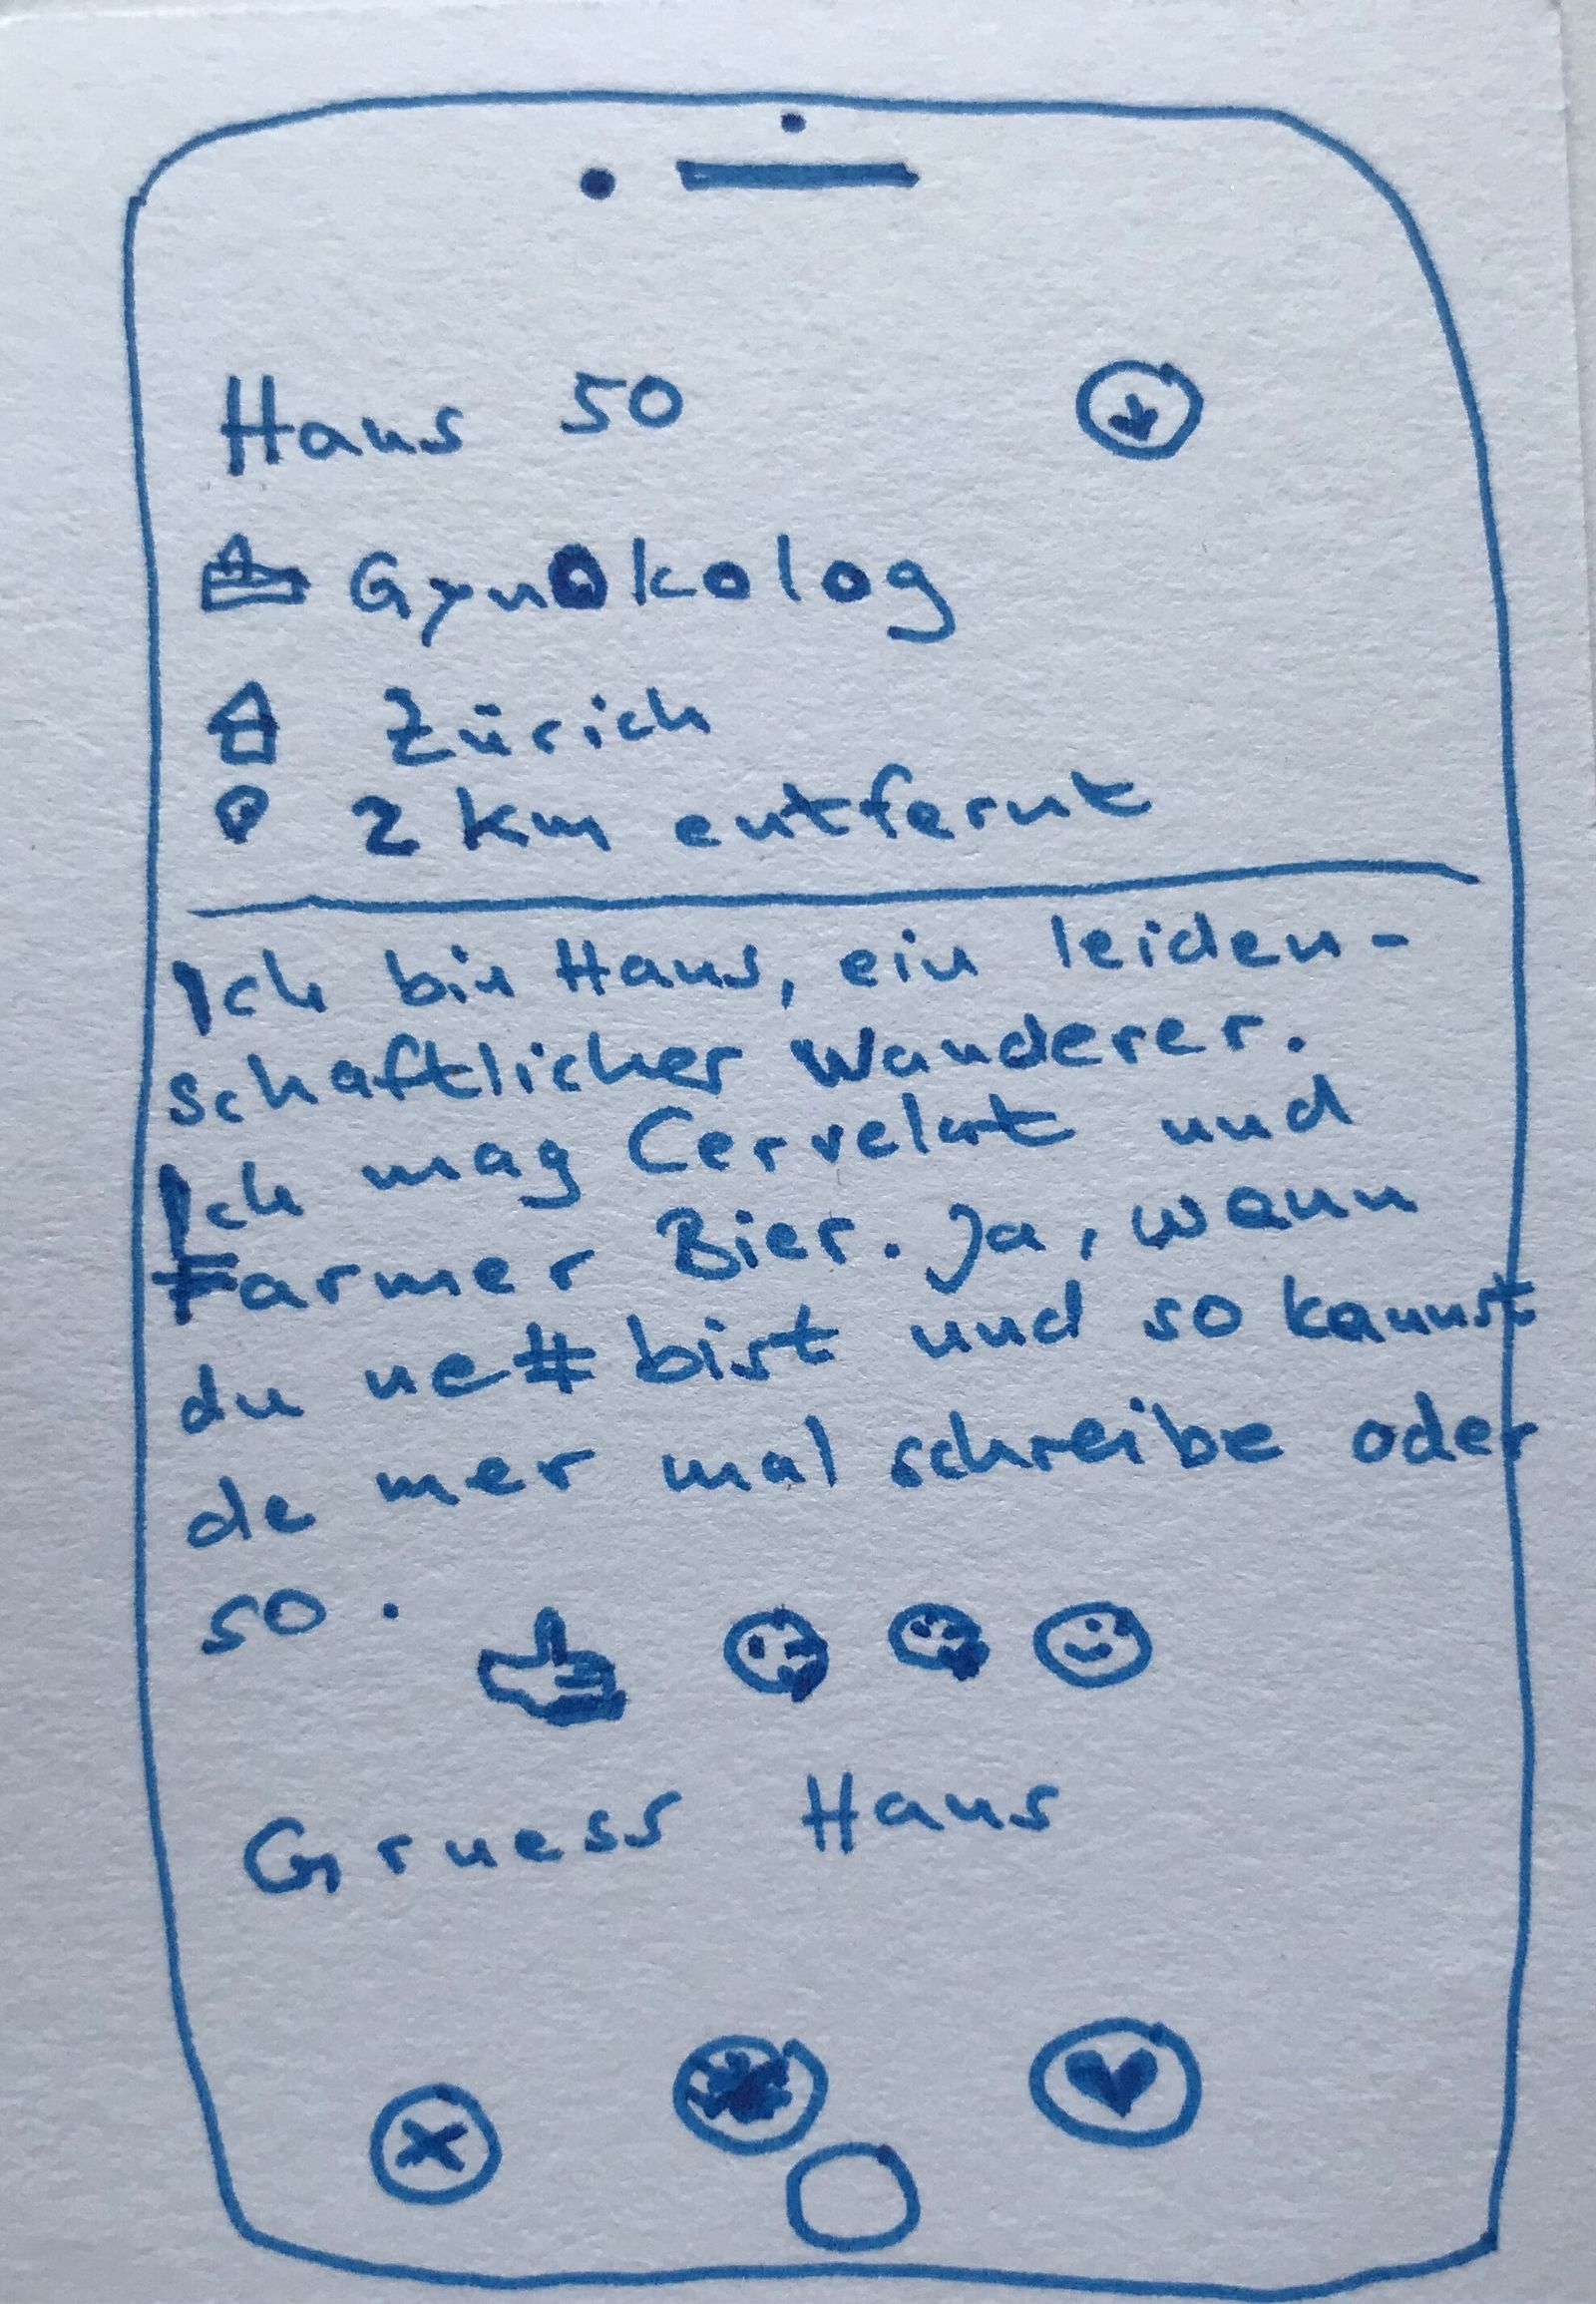 Hans 50
Gynokolog
Zürich
2 km entfernt
Ich bin Hans, ein leiden-
schaftlicher Wanderer.
Ich mag Cervelat und
Farmer Bier. Ja, wenn
du nett bist und so kannst
de mer mal schreibe oder
so.
Gruess Hans